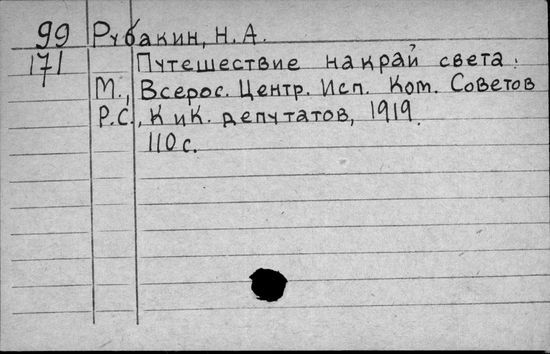 99 Рубакин, Н. А.
171 Путешествие на край света.
М., Всерос. Центр. Исп. Ком. Советов
Р.С., К и К. депутатов, 1919.
110 с.